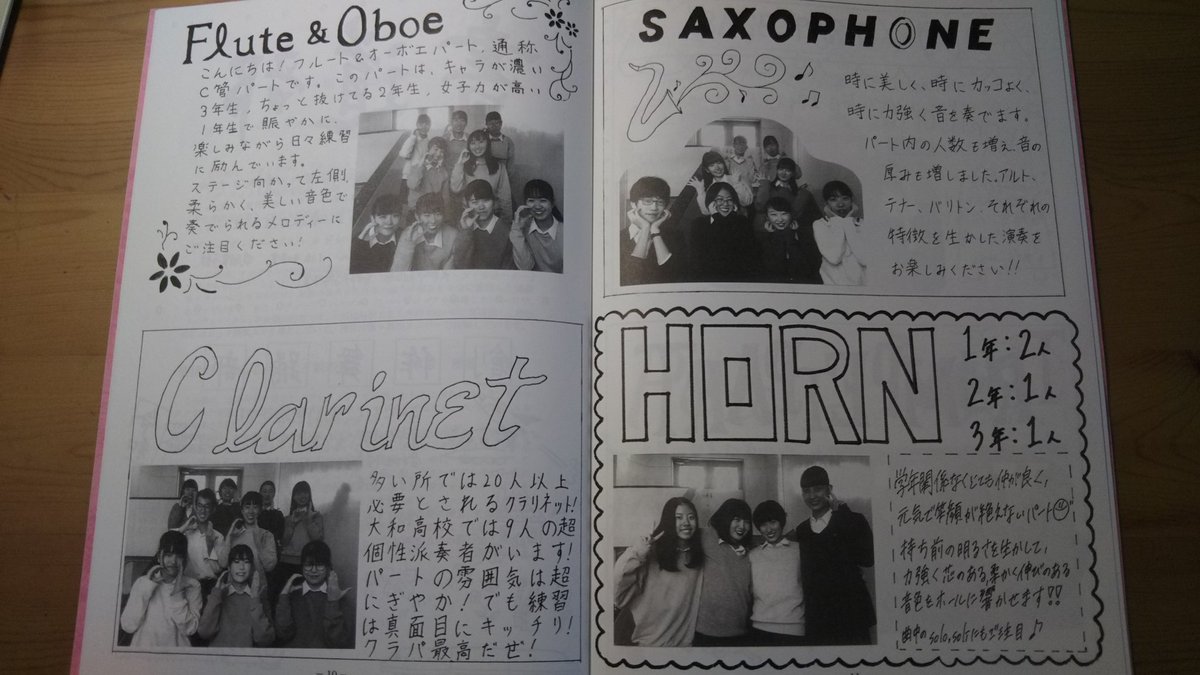 Flute & Oboe
こんにちは！フルート&オーボエパート、通称
C管パートです。このパートは、キャラが濃い
3年生、ちょっと抜けてる2年生、女子力が高い
1年生で賑やかに、
楽しみながら日々練習
に励んでいます。
ステージ向かって左側、
柔らかく、美しい音色で
奏でられるメロディーに
ご注目ください！
Clarinet
多い所では20人以上
必要とされるクラリネット!
大和高校では9人の超
個性派奏者がいます!
パートの雰囲気は超
にぎやか!でも練習
は真面目にキッチリ!
クラパ最高だぜ!
-10-
SAXOPHONE
時に美しく、時にカッコよく、
時に力強く音を奏でます。
パート内の人数も増え、音の
厚みも増しました。アルト、
テナー、バリトン、それぞれの
特徴を生かした演奏を
お楽しみください!!
HORN
1年:2人
2年:1人
3年:1人
学年関係なくとても仲が良く、
元気で笑顔が絶えないパート
持ち前の明るさを生かして、
力強く芯のある、柔かく伸びのある
音色をホールに響かせます!!
曲中のsolo,soliにもご注目♪